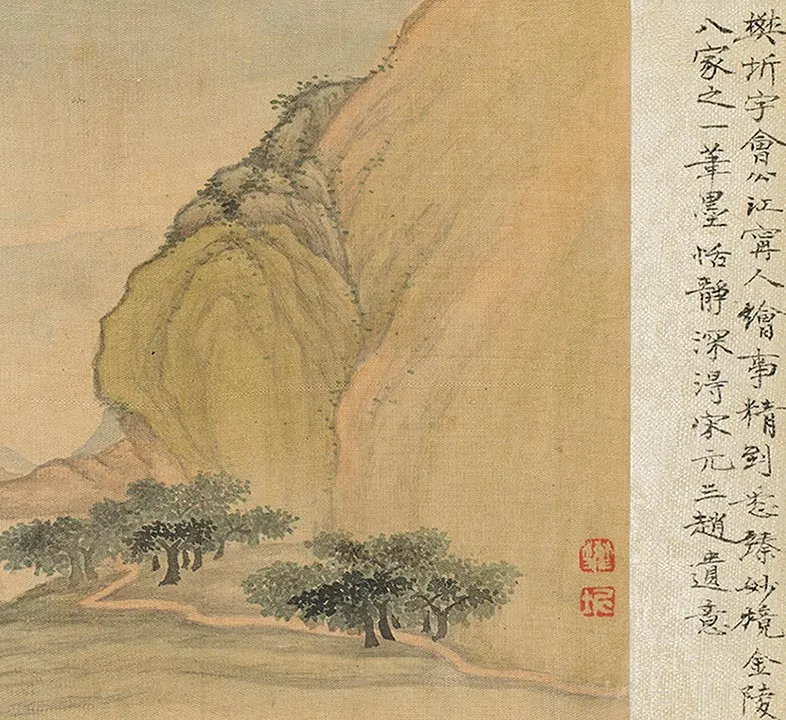 樊圻字會公江寧人繪事精到悉臻妙境金陵
八家之一筆墨恬靜深得宋元三趙遺意
樊
圻